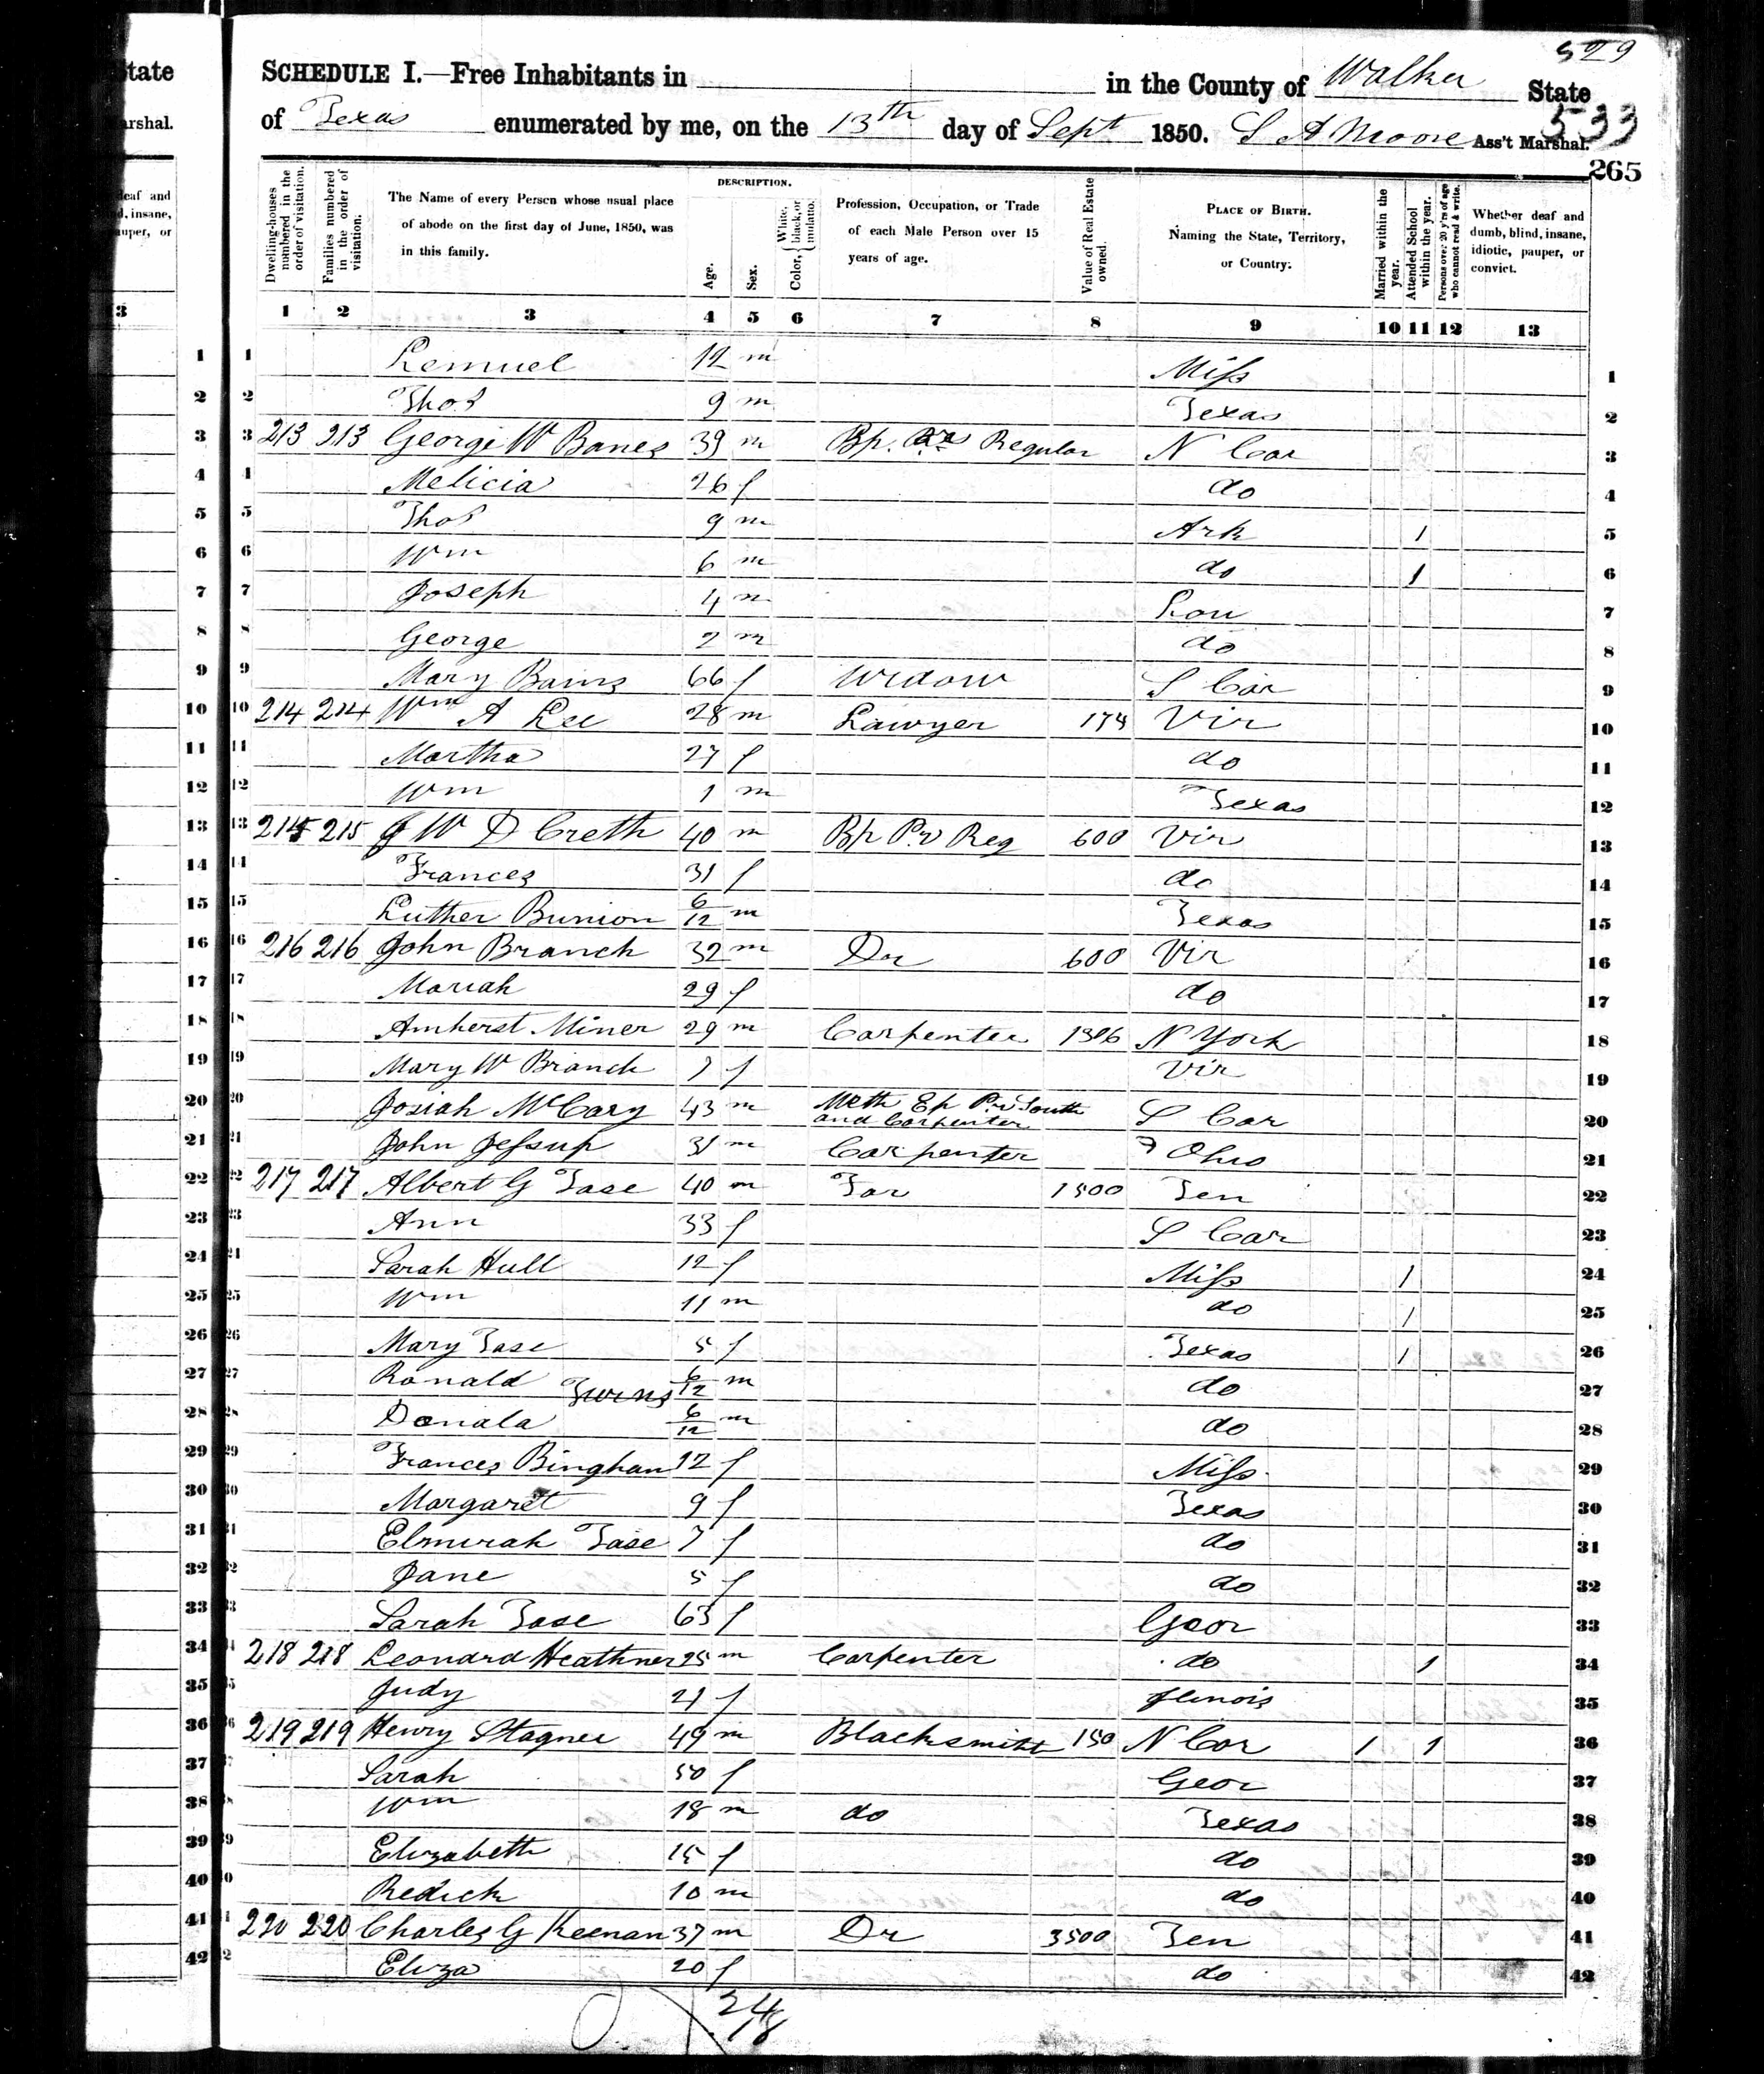 529
SCHEDULE I.—Free Inhabitants in in the County of Walker State
of Texas enumerated by me, on the 13th day of Sept 1850. S A Moore Ass't Marshal.
533
265
State
arshal.
deaf and
d, insane,
auper, or
3
Dwelling-houses numbered in the order of visitation.
Families numbered in the order of visitation.
The Name of every Person whose usual place of abode on the first day of June, 1850, was in this family.
DESCRIPTION.
Age.
Sex.
Color, { White, black, or mulatto.
Profession, Occupation, or Trade of each Male Person over 15 years of age.
Value of Real Estate owned.
PLACE OF BIRTH. Naming the State, Territory, or Country.
Married within the year.
Attended School within the year.
Persons over 20 y'rs of age who cannot read & write.
Whether deaf and dumb, blind, insane, idiotic, pauper, or convict.
1 2 3 4 5 6 7 8 9 10 11 12 13
1 Lemuel 12 m Miss 1
2 Thos 9 m Texas 2
3 213 213 George W Banes 39 m Bp. Regular N Car 3
4 Melicia 26 f do 4
5 Thos 9 m Ark 1 5
6 Wm 6 m do 1 6
7 Joseph 4 m Lou 7
8 George 2 m do 8
9 Mary Bains 66 f Widow S Car 9
10 214 214 Wm A Lee 28 m Lawyer 174 Vir 10
11 Martha 27 f do 11
12 Wm 1 m Texas 12
13 215 215 J W D Creth 40 m Bp Pr Reg 600 Vir 13
14 Frances 31 f do 14
15 Luther Bunion 6/12 m Texas 15
16 216 216 John Branch 32 m Dr 600 Vir 16
17 Mariah 29 f do 17
18 Amherst Miner 29 m Carpenter 1306 N York 18
19 Mary W Branch 7 f Vir 19
20 Josiah McCary 43 m Meth Ep Pr South and Carpenter S Car 20
21 John Jessup 31 m Carpenter Ohio 21
22 217 217 Albert G Tase 40 m Far 1500 Ten 22
23 Ann 33 f S Car 23
24 Sarah Hull 12 f Miss 1 24
25 Wm 11 m do 1 25
26 Mary Tase 5 f Texas 1 26
27 Ronald Twins 6/12 m do 27
28 Donald 6/12 m do 28
29 Frances Bingham 12 f Miss 29
30 Margaret 9 f Texas 30
31 Elmirah Tase 7 f do 31
32 Jane 5 f do 32
33 Sarah Tase 63 f Geor 33
34 218 218 Leonard Heathner 25 m Carpenter do 1 34
35 Judy 21 f Ilinois 35
36 219 219 Henry Stagner 49 m Blacksmith 150 N Car 1 1 36
37 Sarah 50 f Geor 37
38 Wm 18 m do Texas 38
39 Elizabeth 15 f do 39
40 Redick 10 m do 40
41 220 220 Charles G Keenan 37 m Dr 3500 Ten 41
42 Eliza 20 f do 42
24
18